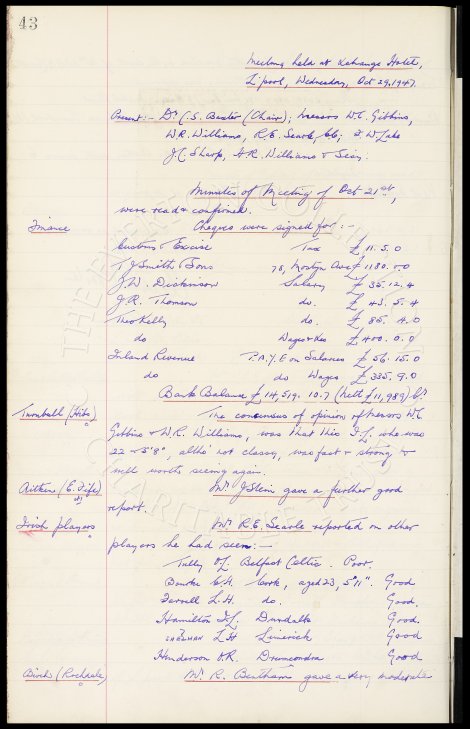 43
Meeting held at Exchange Hotel,
L'pool, Wednesday, Oct 29, 1947.
Present:- Dr C.S. Baxter (Chair); Messrs W.C. Gibbins,
W.R. Williams, R.E. Searle, F.W. Lake
J.C. Sharp, A.R. Williams & Secy.
Minutes of Meeting of Oct 21st,
were read & confirmed.
Finance Cheques were signed for:-
Customs & Excise Tax £ 11. 5. 0
T J Smith & Sons 78, Mostyn Ave £ 1180. 0. 0
J.W. Dickinson Salary £ 35. 12. 4
J.R. Thomson do. £ 43. 5. 4
Theo Kelly do. £ 85. 4. 0
do Wages & Exs £ 400. 0. 0
Inland Revenue P.A.Y.E on Salaries £ 56. 15. 0
do do Wages £ 335. 9. 0
Bank Balance £14,519. 10. 7 (nett £11,989) Cr
Turnbull (Hibs) The concensus of opinion of Messrs W.C
Gibbins & W.R. Williams, was that this I.L. who was
22 - 5'8", altho' not classy, was fast & strong &
well worth seeing again.
Aitken (E. Fife) Mr J Stein gave a further good
report.
Irish players Mr R.E. Searle reported on other
players he had seen:-
Tully O.L. Belfast Celtic. Poor.
Bourke C.H. Cork, aged 23, 5'11". Good
Farrell L.H. do. Good.
Hamilton I.L. Dundalk Good.
L.H Limerick Good
Henderson O.R. Drumcondra Good
Birch (Rochdale) Mr R. Bentham gave a very moderate
THE EVERTON COLLECTION
CHARITABLE TRUST